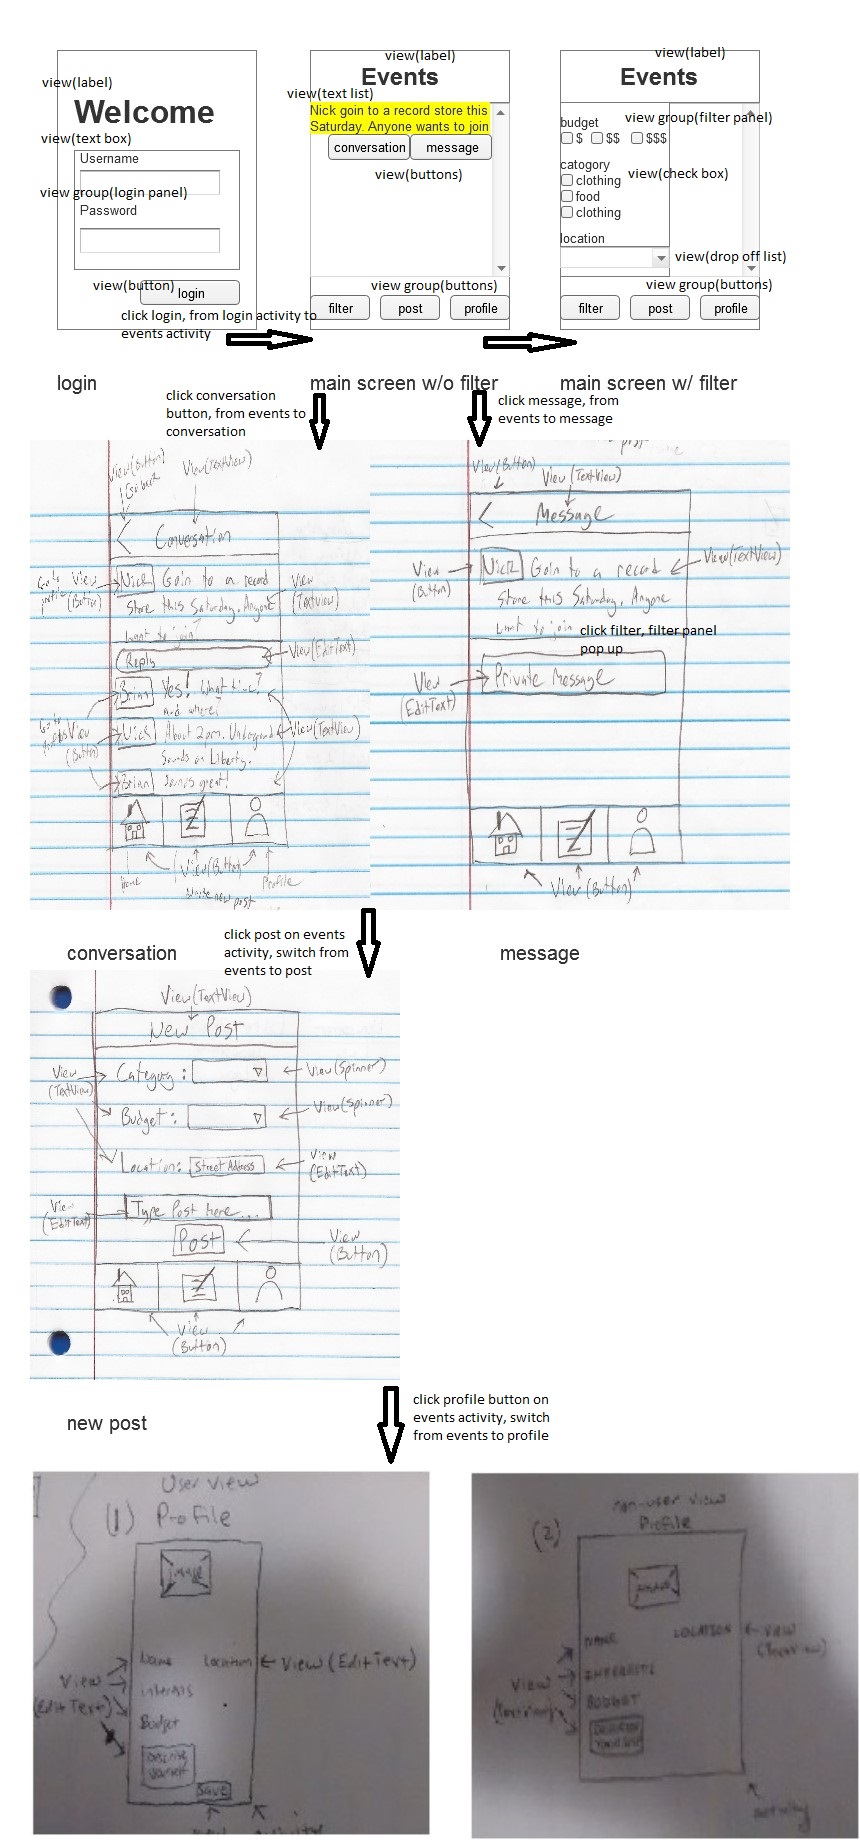 view(label)
Welcome
view(text box)
Username
view group(login panel)
Password
view(button)
login
click login, from login activity to
events activity
login
view(label)
Events
view(text list)
Nick goin to a record store this
Saturday. Anyone wants to join
conversation
message
view(buttons)
view group(buttons)
filter
post
profile
main screen w/o filter
view(label)
Events
budget
view group(filter panel)
$ $$ $$$
catogory
view(check box)
clothing
food
clothing
location
view(drop off list)
view group(buttons)
filter
post
profile
main screen w/ filter
click conversation
button, from events to
conversation
click message, from
events to message
View(Button)
View(TextView)
Conversation
Go to
View
(Button)
Nick
Goin to a record
store this Saturday. Anyone
want to join?
View
(TextView)
Reply
View(EditText)
Brian
Yes! What time?
And where?
View
(Button)
Nick
About 2pm. Underground
Sounds on Liberty.
View(TextView)
Brian
Sounds great!
View(Button)
Home
write new post
Profile
conversation
View(Button)
View(TextView)
Message
View
(Button)
Nick
Goin to a record
store this Saturday. Anyone
want to join
View(TextView)
click filter, filter panel
pop up
View
(EditText)
Private Message
View(Button)
message
click post on events
activity, switch from
events to post
View(TextView)
New Post
View
(TextView)
Category:
View(Spinner)
Budget:
View(Spinner)
Location:
Street Address
View
(EditText)
View
(EditText)
Type Post here...
Post
View
(Button)
View
(Button)
new post
click profile button on
events activity, switch
from events to profile
User view
(1) Profile
image
Name
Location
View(EditText)
View
(EditText)
interests
Budget
Describe
yourself
Save
non-user view
(2) Profile
image
NAME
LOCATION
view
INTERESTS
View
BUDGET
activity